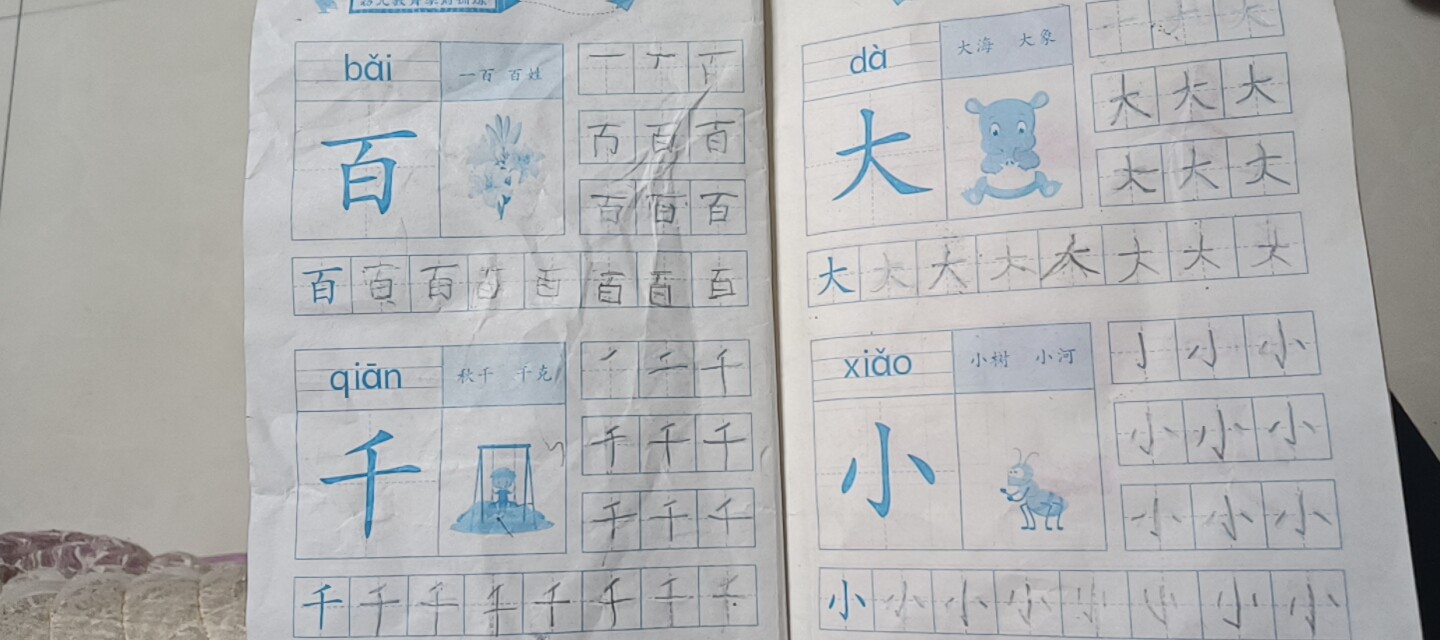 bǎi
一百 百姓
百
百 百 百
百 百 百
百 百 百 百 百 百 百 百
qiān
秋千 千克
千
千
千 千 千
千 千 千
千 千 千 千 千 千 千 千
dà
大海 大象
大
大
大 大 大
大 大 大
大 大 大 大 大 大 大 大
xiǎo
小树 小河
小
小 小
小 小 小
小 小 小
小 小 小 小 小 小 小 小